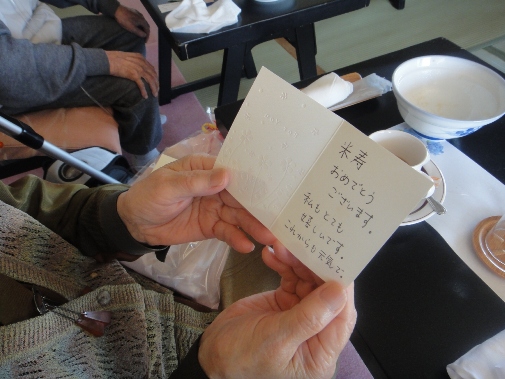 米寿
おめでとう
ございます。
私もとても
嬉しいです。
これからも元気で。